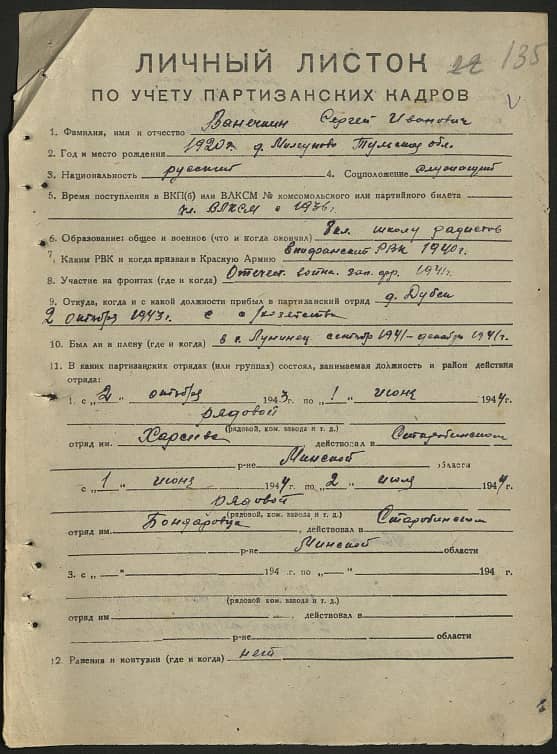 ЛИЧНЫЙ ЛИСТОК 22 135
ПО УЧЕТУ ПАРТИЗАНСКИХ КАДРОВ V
1. Фамилия, имя и отчество Ванечкин Сергей Иванович
2. Год и место рождения 1920г. д. Тульская обл.
3. Национальность русский 4. Соцположение служащий
5. Время поступления в ВКП(б) или ВЛКСМ № комсомольского или партийного билета
чл. ВЛКСМ с 1936г.
6. Образование: общее и военное (что и когда окончил) 8 кл. школу радистов
7. Каким РВК и когда призван в Красную Армию РВК 1940г.
8. Участие на фронтах (где и когда) Отечест. война. зап. фр. 1941г.
9. Откуда, когда и с какой должности прибыл в партизанский отряд
2 октября 1943г. с с/хозяйства
10. Был ли в плену (где и когда) в г. Лунинец сентябр 1941 - декабрь 1941г.
11. В каких партизанских отрядах (или группах) состоял, занимаемая должность и район действия
отряда:
1. с „2" октября 1943г. по „1" июня 1944г.
рядовой
(рядовой, ком. взвода и т. д.)
отряд им. действовал в Старобинском
р-не Минской области
с „1" июня 1944г. по „2" июля 1944г.
рядовой
(рядовой, ком. взвода и т. д.)
отряд им. Бондаровца, действовал в Старобинском
р-не Минской области
3. с „ " 194 г. по „ " 194 г.
(рядовой, ком. взвода и т. д.)
отряд им действовал в
р-не области
12. Ранения и контузии (где и когда) нет